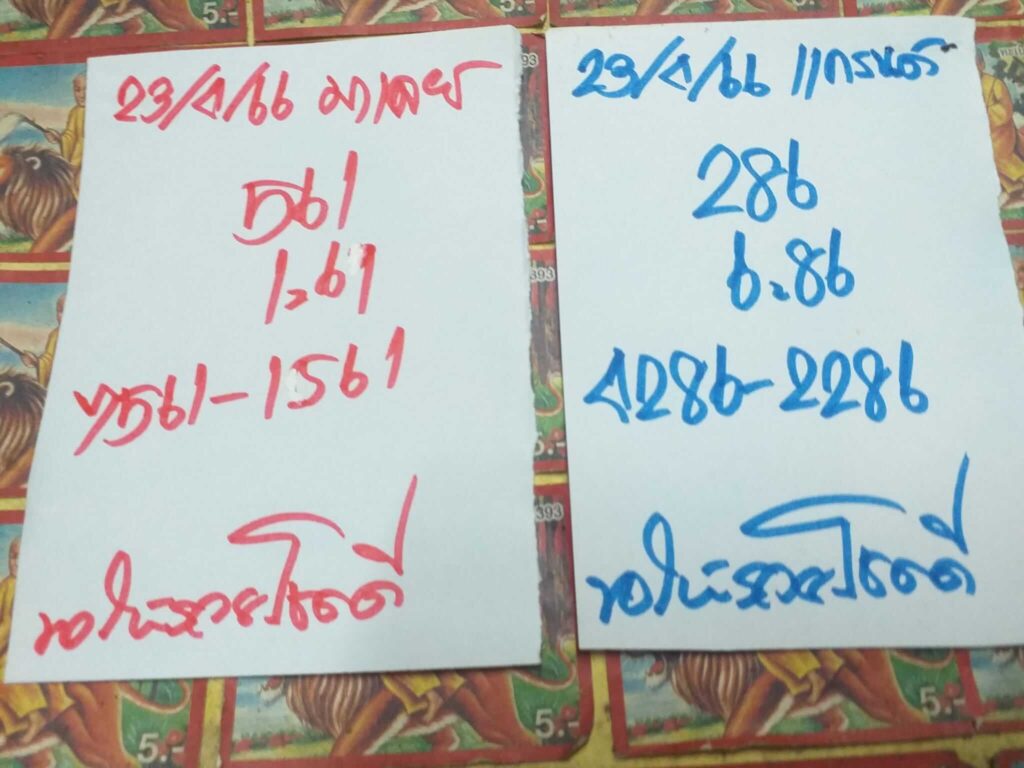 23/4/66 มาเลย์
561
1=61
7561-1561
ขอให้รวยโชคดี
23/4/66 แกรนด์
286
6=86
4286-2286
ขอให้รวยโชคดี
5.-
5.-
393
393
5.-
393
5.-
5.-
5.-